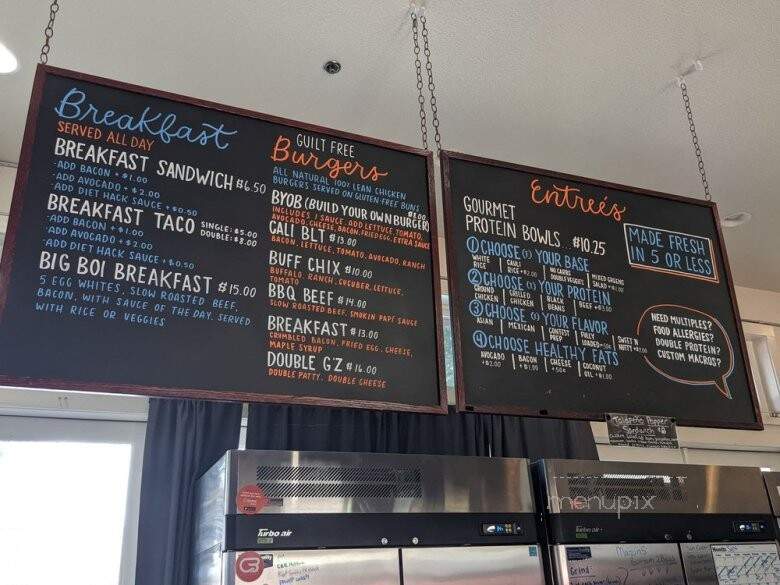 Breakfast
SERVED ALL DAY
BREAKFAST SANDWICH $6.50
·ADD BACON + $1.00
·ADD AVOCADO + $2.00
·ADD DIET HACK SAUCE + $0.50
BREAKFAST TACO SINGLE: $5.00
DOUBLE: $8.00
·ADD BACON + $1.00
·ADD AVOCADO + $2.00
·ADD DIET HACK SAUCE + $0.50
BIG BOI BREAKFAST $15.00
5 EGG WHITES, SLOW ROASTED BEEF,
BACON, WITH SAUCE OF THE DAY. SERVED
WITH RICE OR VEGGIES
GUILT FREE
Burgers
ALL NATURAL 100% LEAN CHICKEN
BURGERS SERVED ON GLUTEN-FREE BUNS
BYOB (BUILD YOUR OWN BURGER) $8.00
INCLUDES 1 SAUCE, ADD LETTUCE, TOMATO,
AVOCADO, CHEESE, BACON, FRIED EGG, EXTRA SAUCE
CALI BLT $13.00
BACON, LETTUCE, TOMATO, AVOCADO, RANCH
BUFF CHIX $10.00
BUFFALO, RANCH, CUCUBER, LETTUCE,
TOMATO
BBQ BEEF $14.00
SLOW ROASTED BEEF, SMOKIN PAPI SAUCE
BREAKFAST $13.00
CRUMBLED BACON, FRIED EGG, CHEESE,
MAPLE SYRUP
DOUBLE G'Z $16.00
DOUBLE PATTY, DOUBLE CHEESE
Entreés
GOURMET
PROTEIN BOWLS... $10.25
MADE FRESH
IN 5 OR LESS
① CHOOSE (1) YOUR BASE
WHITE RICE | CAULI RICE +$2.00 | NO CARBS DOUBLE VEGGIES | MIXED GREENS SALAD +$1.00
② CHOOSE (1) YOUR PROTEIN
GROUND CHICKEN | GRILLED CHICKEN | BLACK BEANS | BEEF +$3.00
③ CHOOSE (1) YOUR FLAVOR
ASIAN | MEXICAN | CONTEST PREP | FULLY LOADED +50¢ | SWEET N NUTTY +$1.00
④ CHOOSE HEALTHY FATS
AVOCADO +$2.00 | BACON +$1.00 | CHEESE +50¢ | COCONUT OIL +$1.00
NEED MULTIPLES?
FOOD ALLERGIES?
DOUBLE PROTEIN?
CUSTOM MACROS?
Jalapeño Popper
Sandwich $8
Turbo air
Turbo air
Grind
menupix